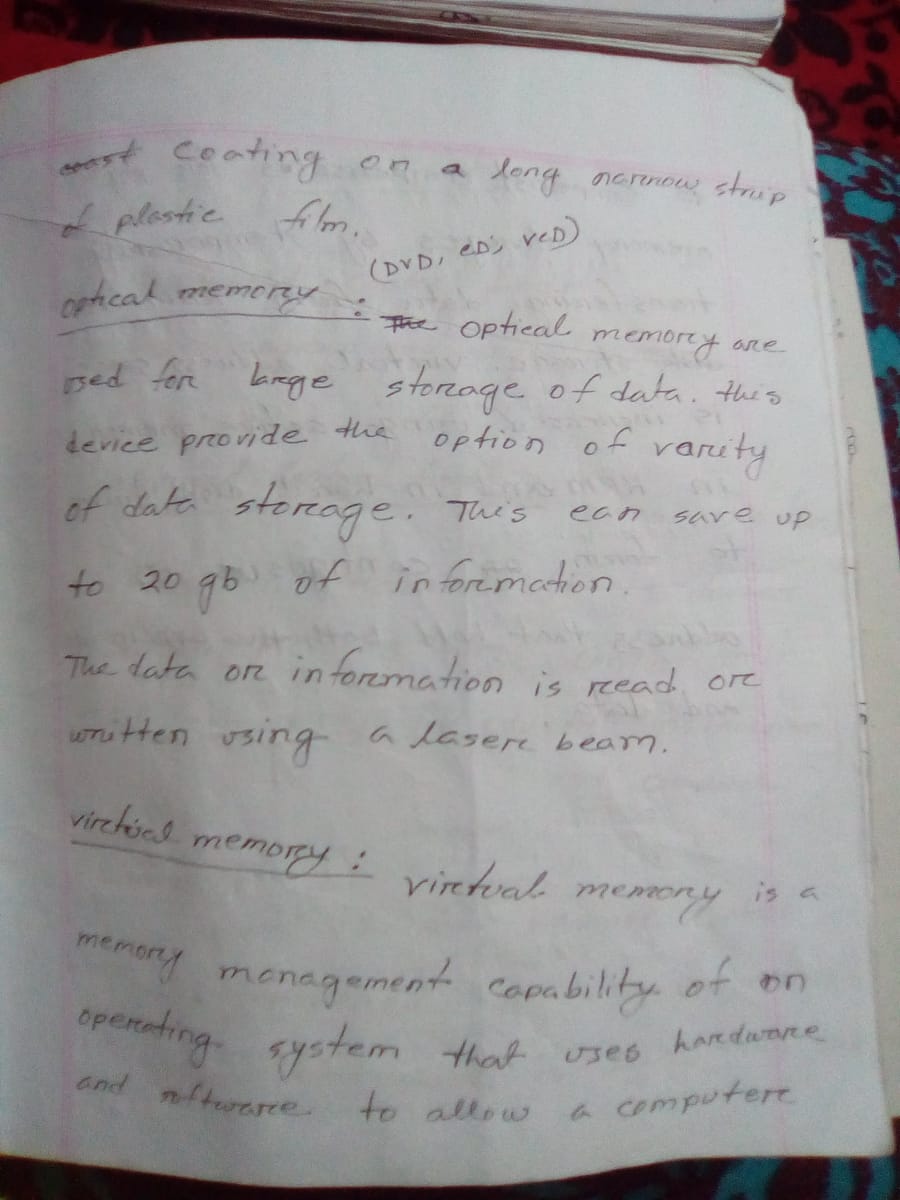 coating on a long narrow strip
of plastic film.
(DVD, CD's, VCD)
optical memory :
The optical memory are
used for large storage of data. this
device provide the option of varity
of data storage. This can save up
to 20 gb of information.
The data or information is read or
written using a laser beam.
virtual memory :
virtual memory is a
memory management capability of an
operating system that uses hardware
and software to allow a computer